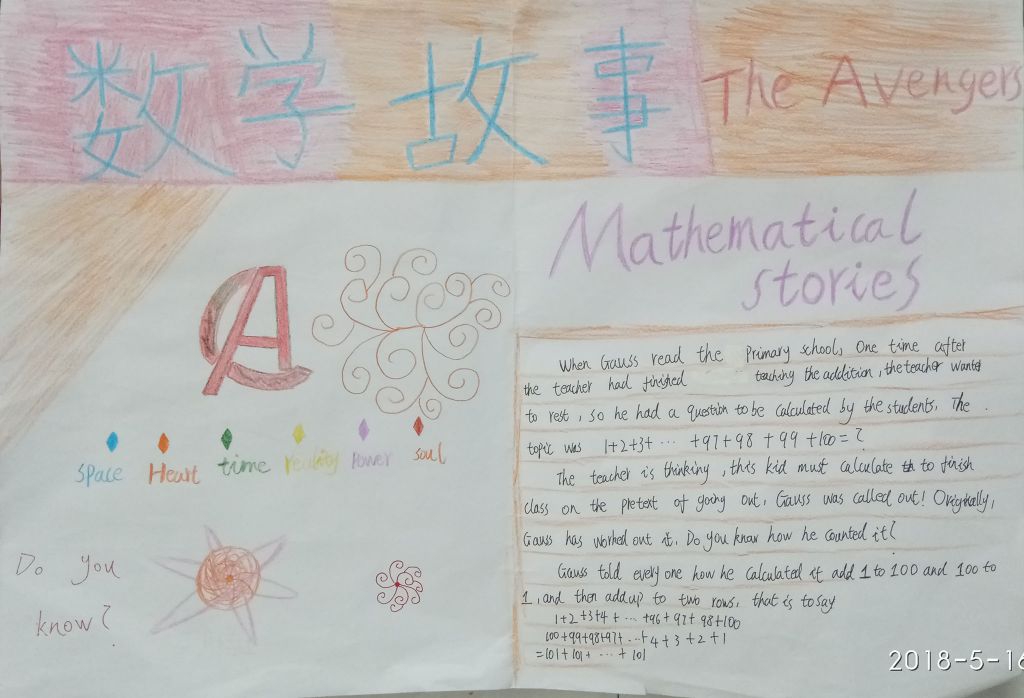 数学故事
The Avengers
Mathematical
stories
A
space Heart time reality Power soul
Do you
know?
When Gauss read the primary school, One time after
the teacher had finished teaching the addition, the teacher wanted
to rest, so he had a question to be calculated by the students. The
topic was 1+2+3+ ... +97+98+99+100=?
The teacher is thinking, this kid must calculate to finish
class on the pretext of going out, Gauss was called out! Originally,
Gauss has worked out it. Do you know how he counted it?
Gauss told every one how he calculated it add 1 to 100 and 100 to
1, and then add up to two rows, that is to say
1+2+3+4+ ... +96+97+98+100
100+99+98+97+ ... +4+3+2+1
=101+101+ ... +101
2018-5-16